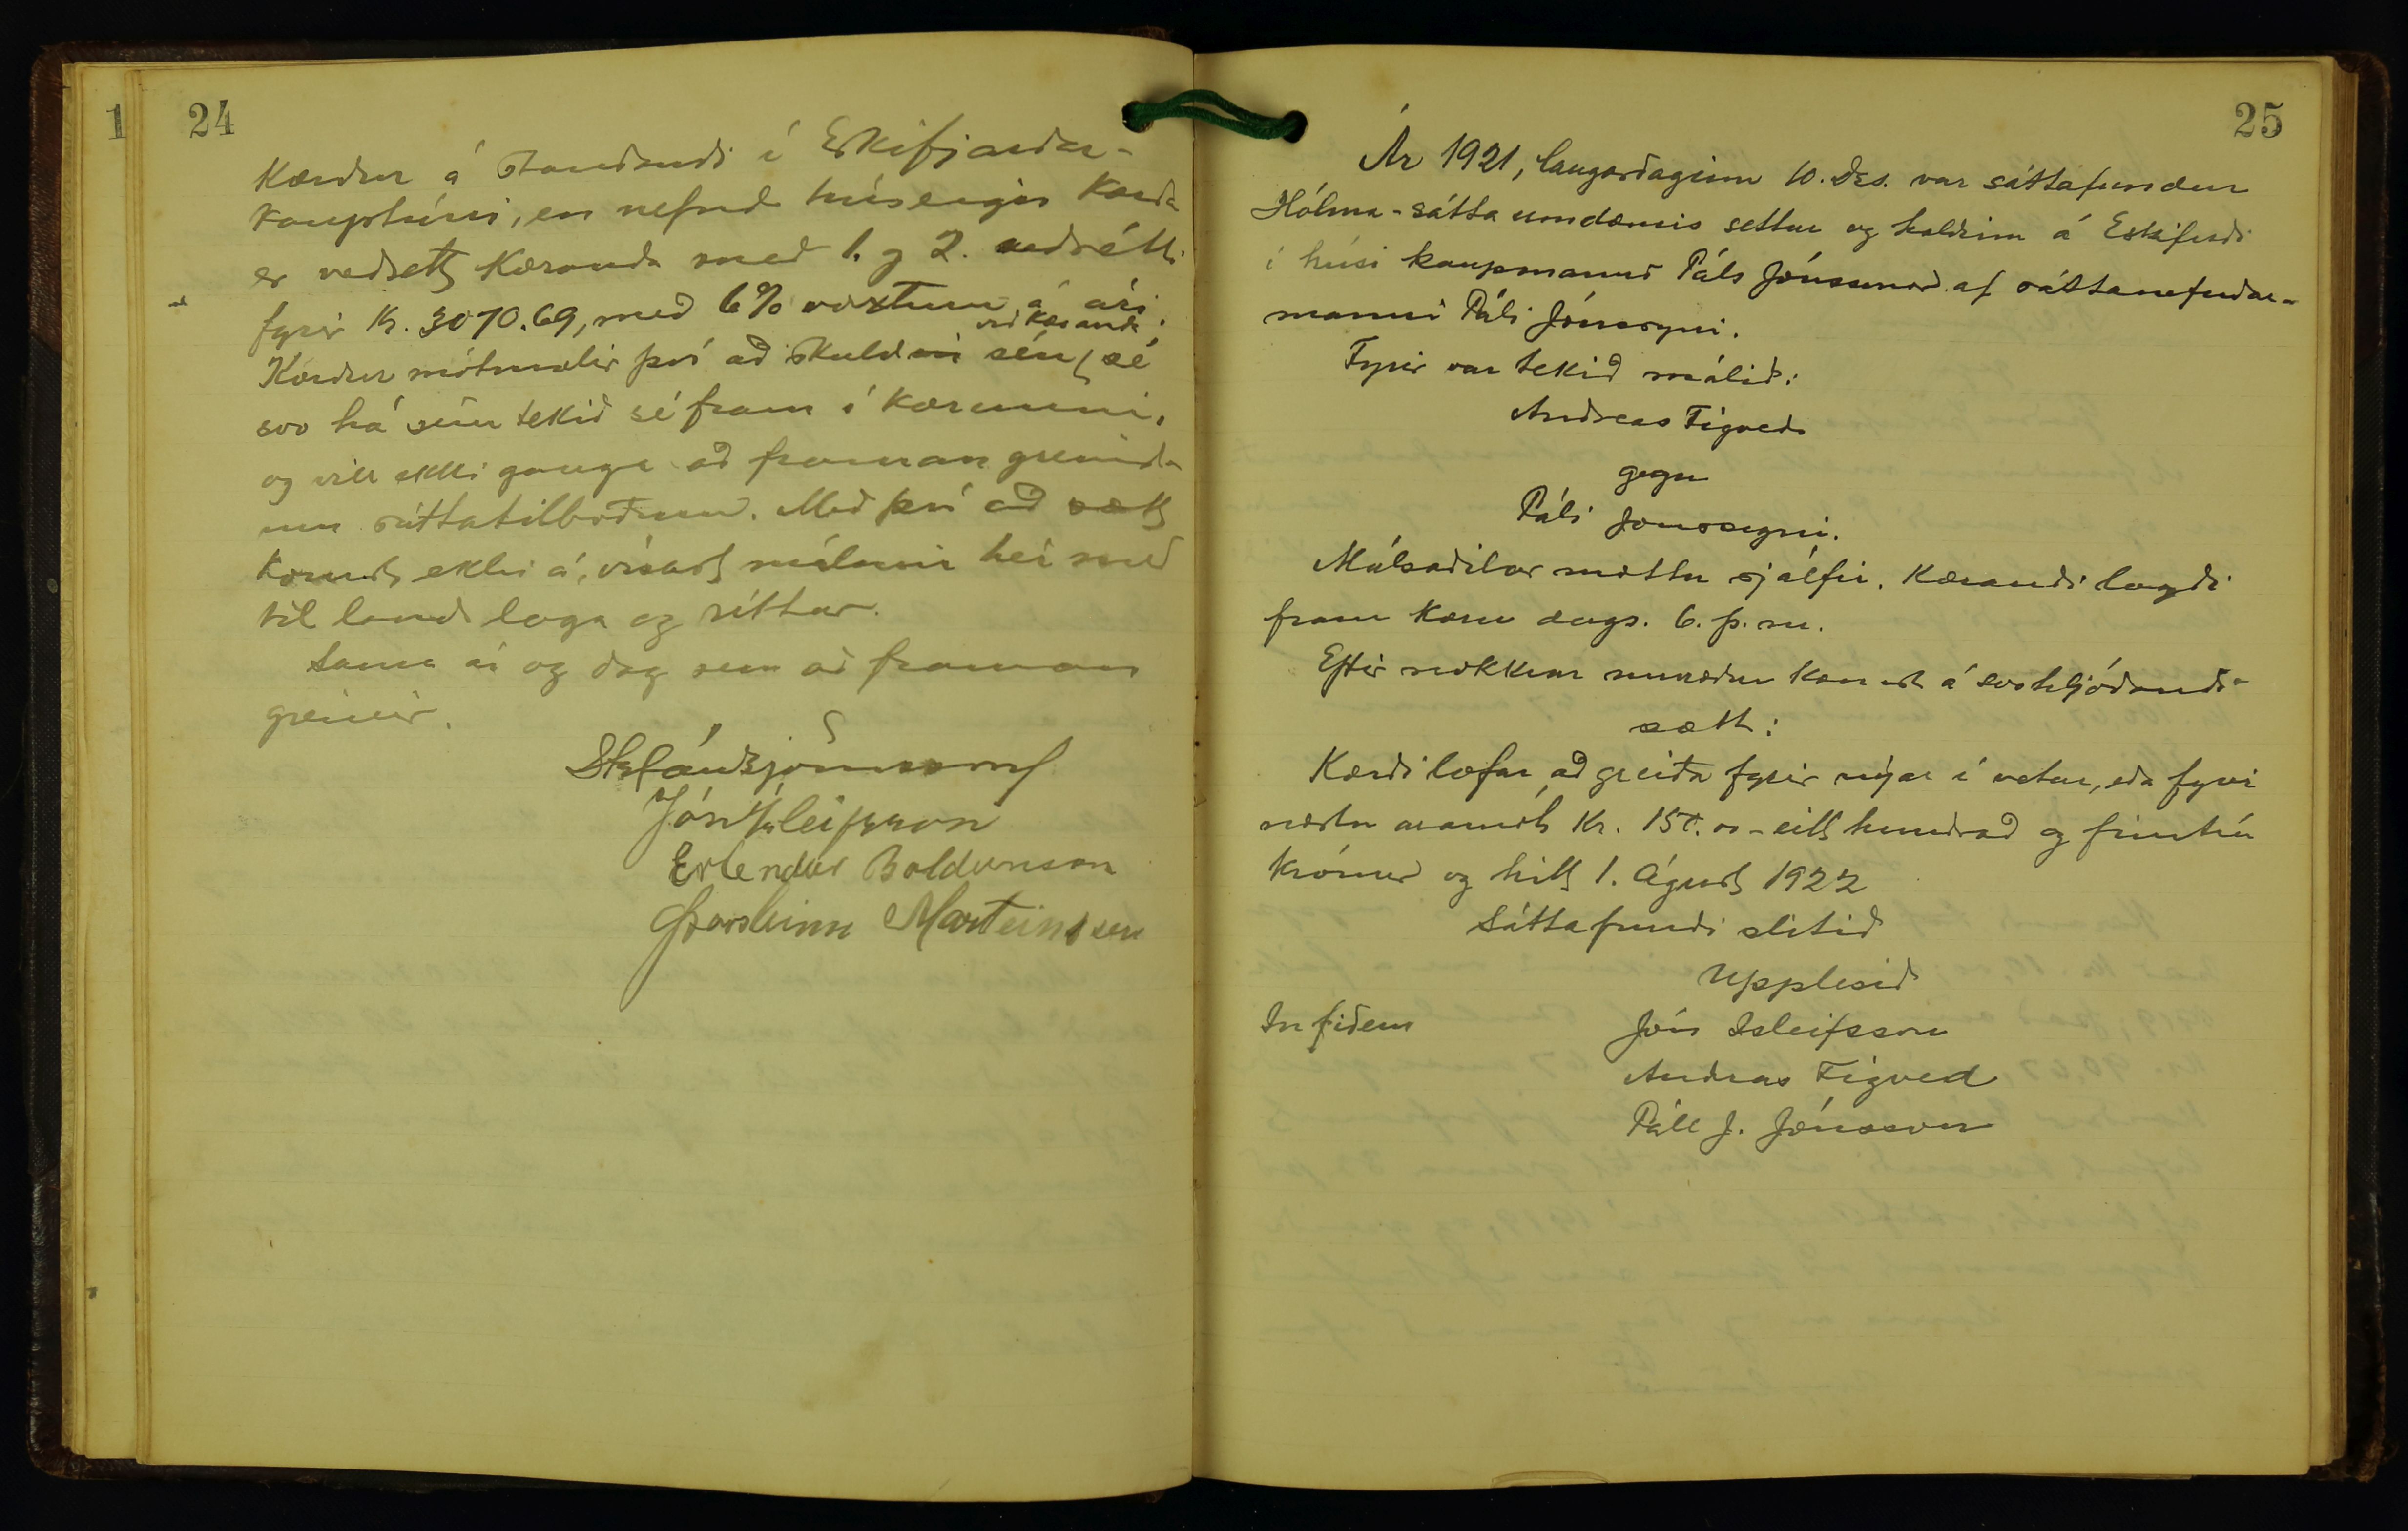 1
24
Kærður á standandi í Eskifjarðar-
kauptúni, en nefnd húseign kærða
er veðsett kæranda með 1. og 2. veðrétti
fyrir Kr. 3070.69, með 6% vöxtum á ári.
við kæranda
Kærður mótmælir því að skuldin sín sé
svo há sem tekið sé fram í kærunni,
og vill ekki ganga að framangreind-
um sáttatilboðum. Með því að sætt
komst ekki á, vísast málinu hér með
til landslaga og réttar.
Sama ár og dag sem að framan
greinir.
Stefán Björnsson
Jón Ísleifsson
Erlendur Baldvinsson
Þorsteinn Marteinsson
25
Ár 1921, laugardaginn 10. Des. var sáttafundur
Hólma-sáttaumdæmis settur og haldinn á Eskifirði
í húsi kaupmanns Páls Jónssonar af sáttanefndar-
manni Páli Jónssyni.
Fyrir var tekið málið:
Andreas Figved
gegn
Páli Jónssyni.
Málsaðilar mættu sjálfir. Kærandi lagði
fram kæru dags. 6. þ. m.
Eftir nokkrar umræður komst á svohljóðandi
sætt:
Kærði lofar að greiða fyrir nýár í vetur, eða fyrir
næstu áramót Kr. 150.00 - eitt hundrað og fimtíu
krónur og hitt 1. Ágúst 1922
Sáttafundi slitið
Upplesið
In fidem
Jón Ísleifsson
Andreas Figved
Páll J. Jónsson